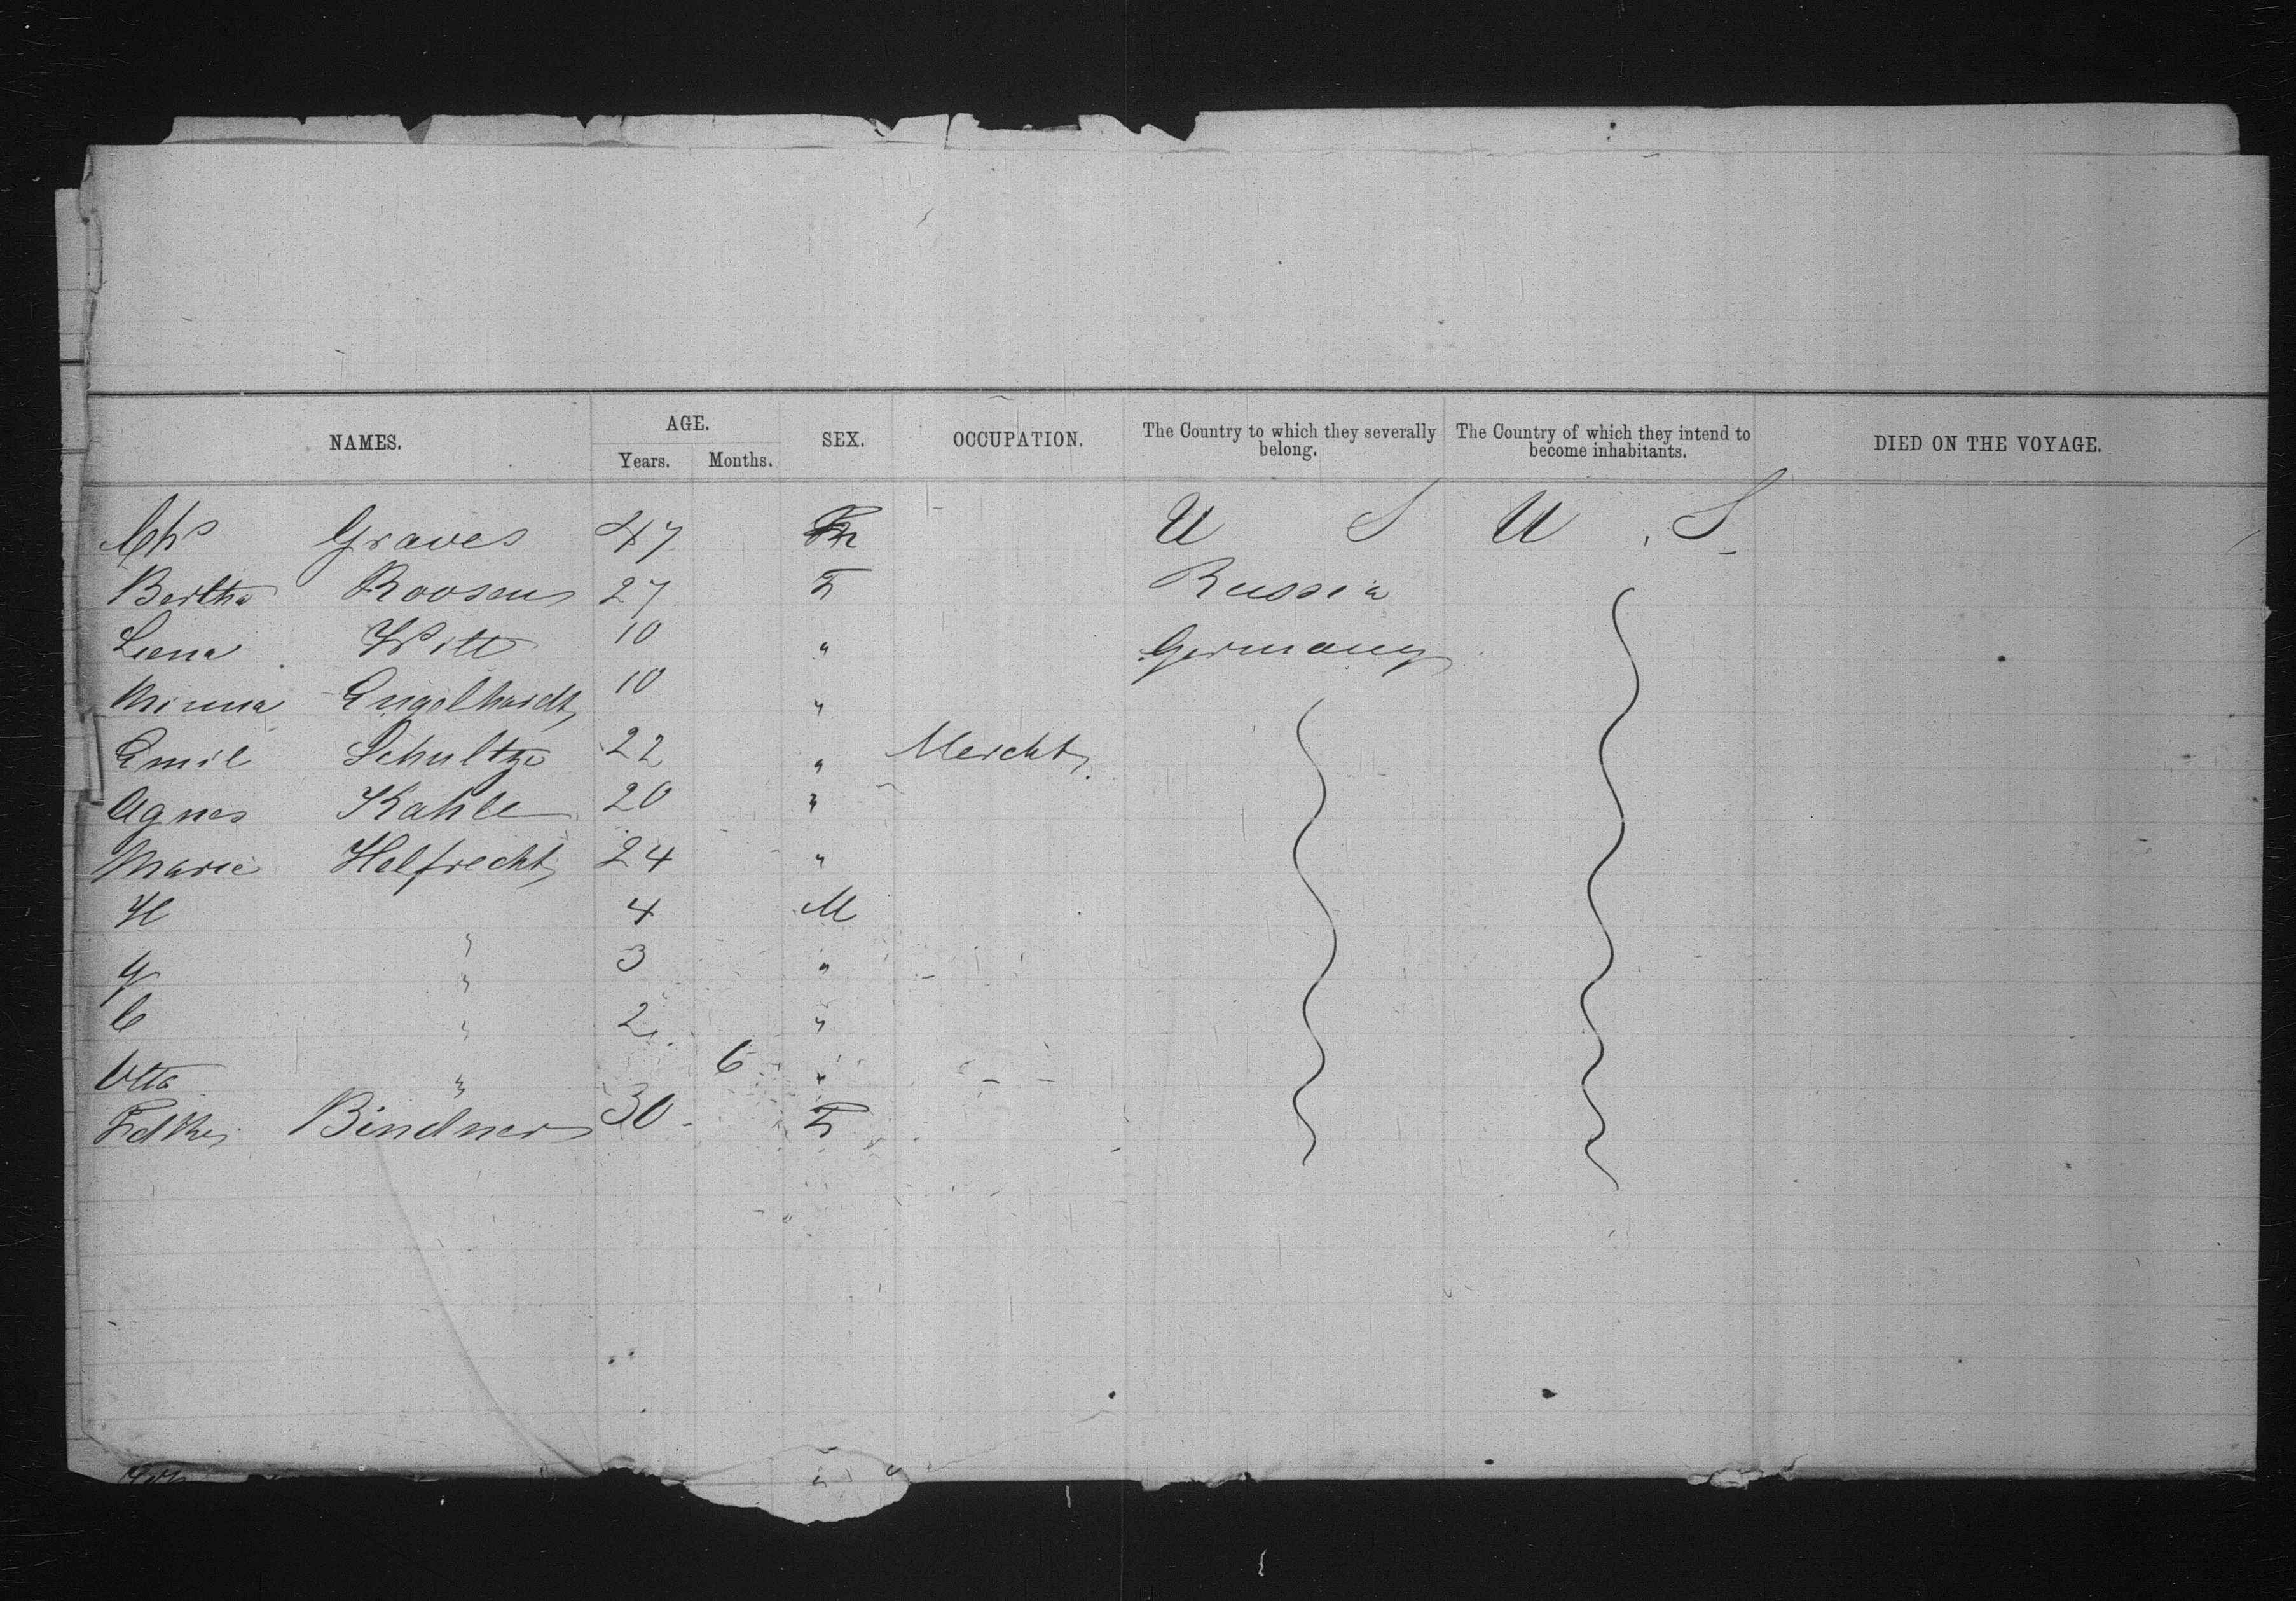 NAMES. AGE. SEX. OCCUPATION. The Country to which they severally belong. The Country of which they intend to become inhabitants. DIED ON THE VOYAGE.
Years. Months.
Chs Graves 47 U S U . S
Bertha Roosen 27 F Russia
Lena Witt 10 " Germany
Minna Engelhardt 10 "
Emil Schultze 22 " Mercht
Agnes Kahle 20 "
Marie Helfrecht 24 "
H " 4 M
" 3 "
C " 2 "
Otto " 6 "
Bindner 30 F